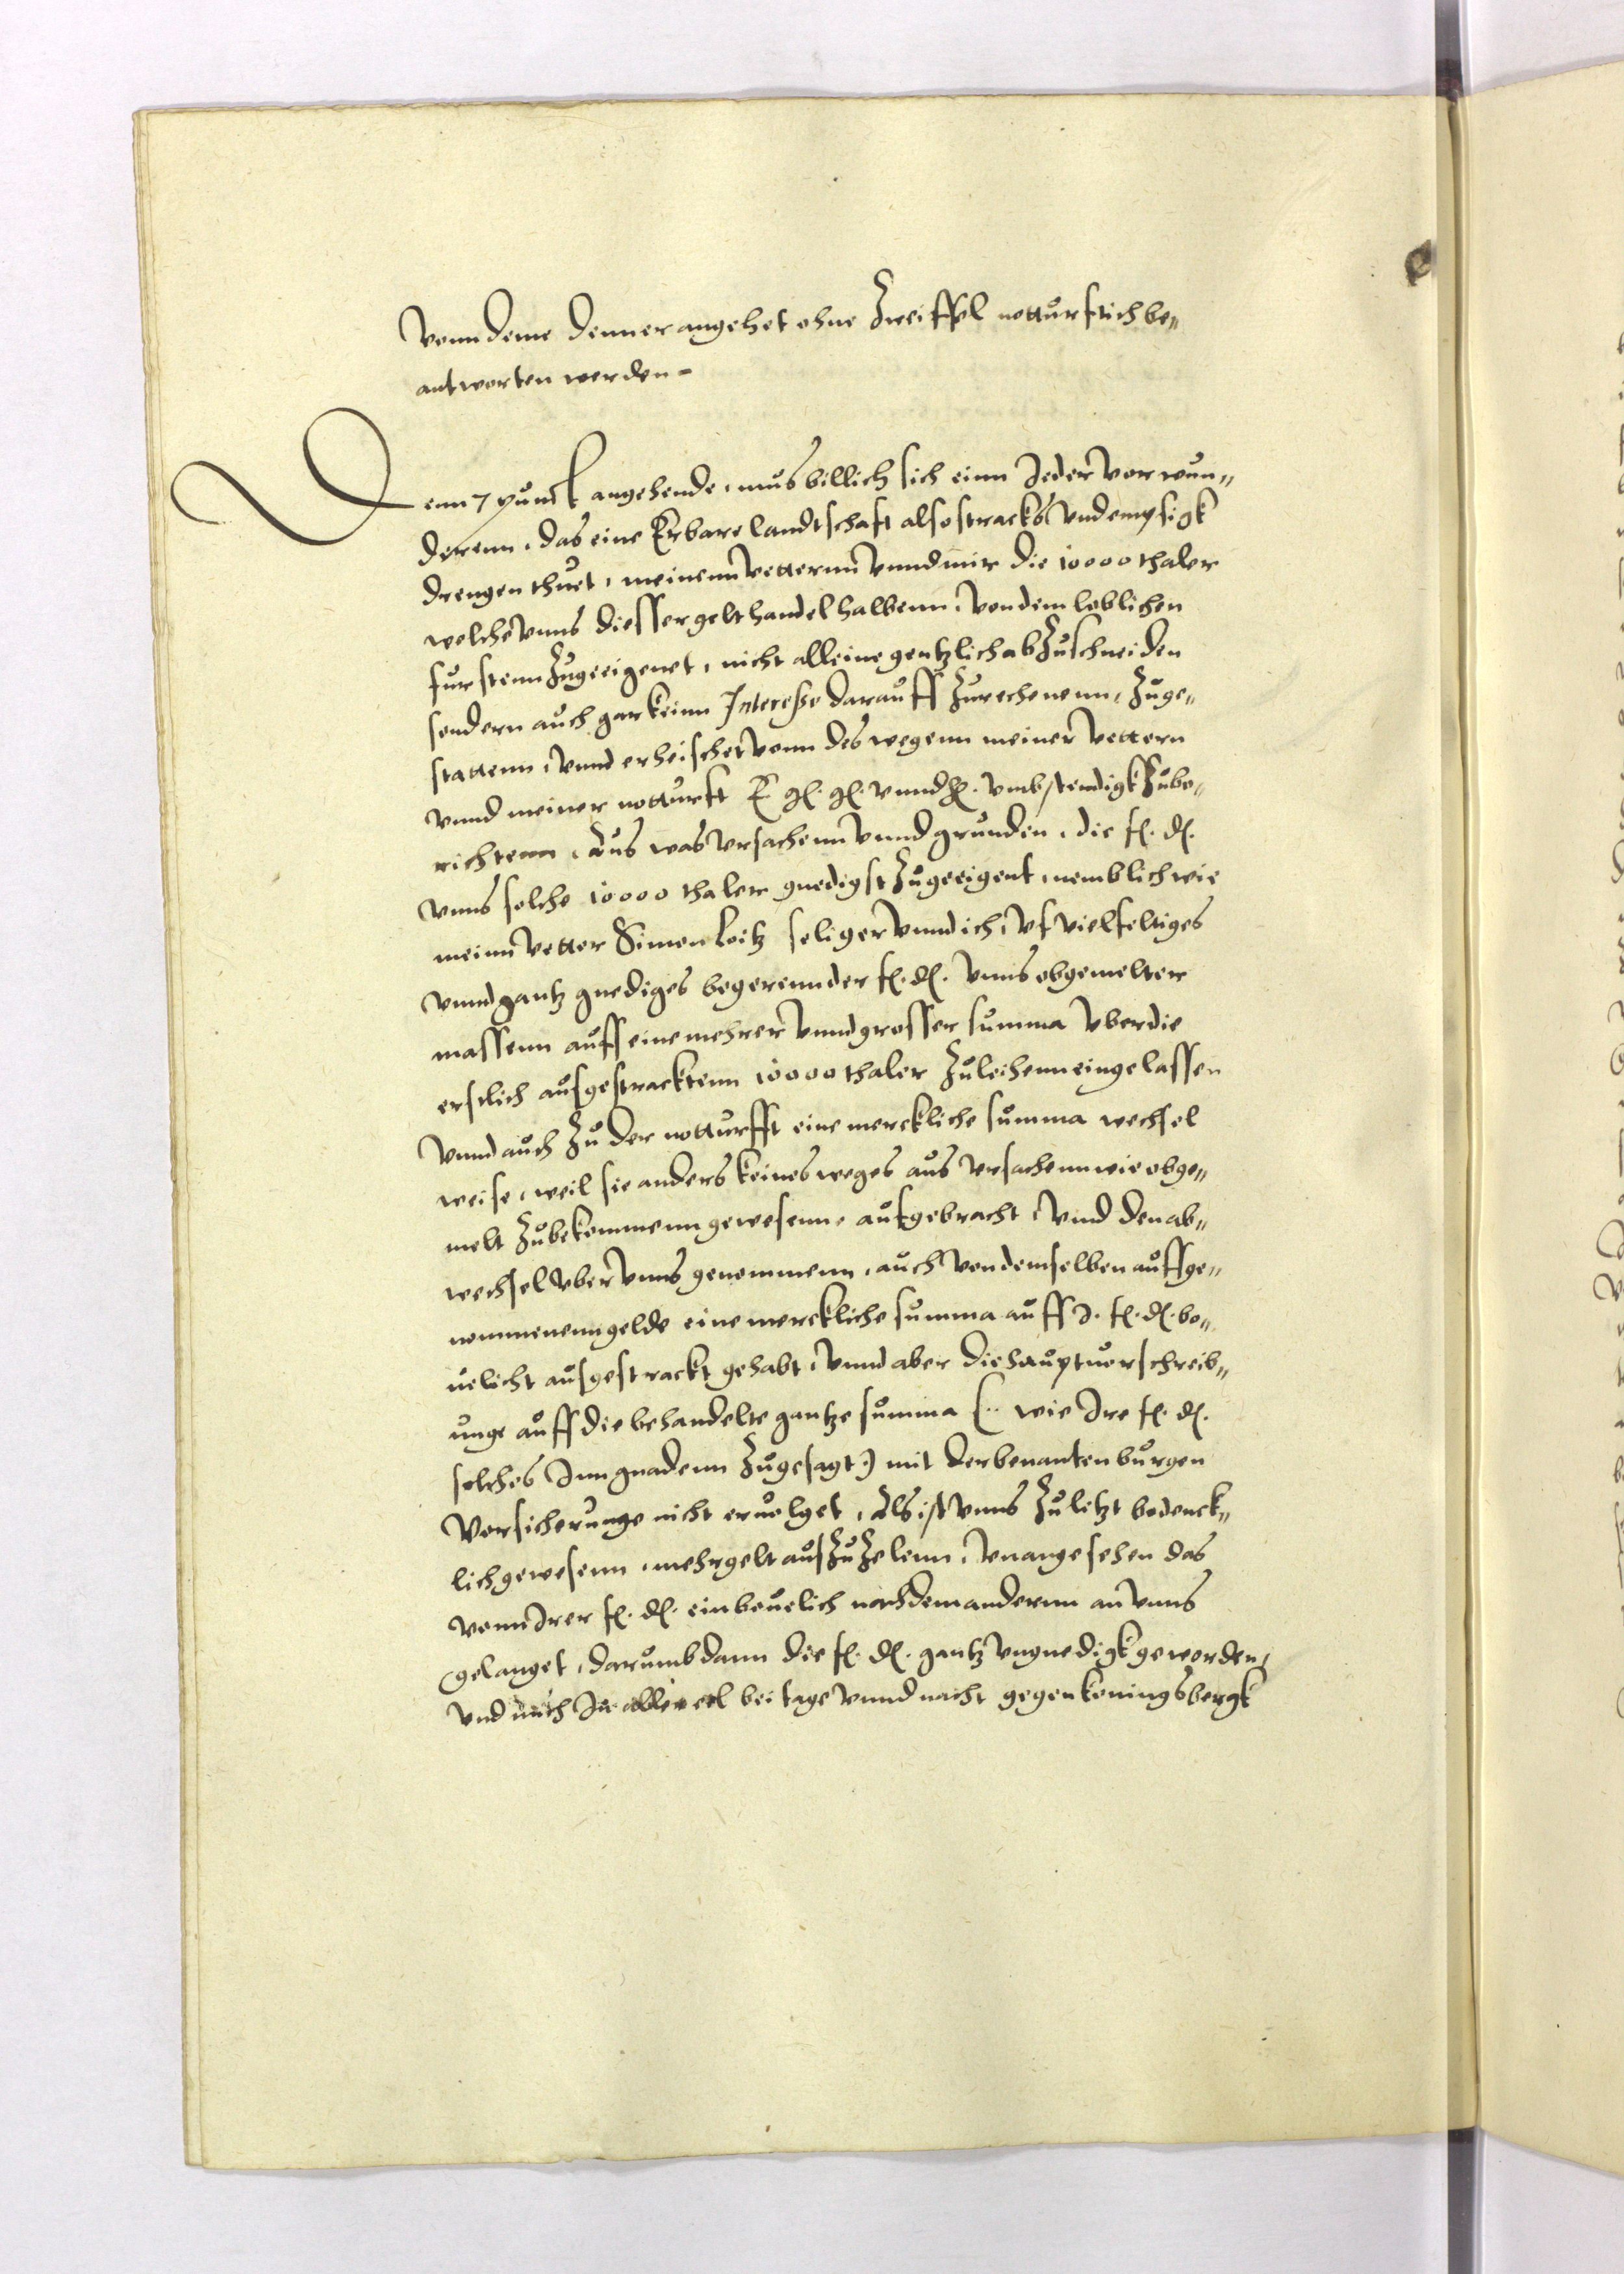 Vonn deme Denner angehet ohne Zweiffel notturftich be„
antworten werden -
Denn 7 punct angehende, mus billich sich einn Jeder Vorwun„
derenn, das eine Erbare landtschaft also stracks vnd empsigk
drengen thuet, meinenn Vetternn Vnnd mir die 10000 thaler
welche Vnns diesser gelthandel halbenn, Von dem loblichen
furstenn Zugeeigenet, nicht alleine gentzlich ab Zuschneiden
sondern auch gar keinn Interesse darauff Zurechenenn, Zuge„
stattenn, Vnnd erheischet Vonn des wegenn meiner Vettern
Vnnd meiner notturft E. g. g. Vnnd h. Vmbstendigk Zube„
richtenn, Aus was Vrsachenn Vnnd grunden, die f. d.
Vnns solche 10000 thaler gnedigst Zugeeigent, nemblich wie
meinn Vetter Simon Loitz seliger Vnnd ich, Vf Vielfeltiges
Vnnd gantz gnediges begerenn der f. d. Vnns obgemelter
massenn auff eine mehrer Vnnd grosser summa Vber die
erstlich ausgestracktenn 10000 thaler Zuleihenn eingelassen
Vnnd auch Zu der notturfft eine merckliche summa wechsel
weise, weil sie anders keines weges aus Vrsachenn wie obge„
melt Zubekommenn gewesenn, aufgebracht, Vnnd den ab„
wechsel Vber Vnns genommenn, auch Von demselben auffge„
nommenenn gelde eine merckliche summa auff J. f. d. be„
uelicht ausgestrackt gehabt, Vnnd aber die hauptuorschreib„
unge auff die behandelte gantze summa (: wie Jre f. d.
solches Jnn gnadenn Zugesagt :) mit der benanten burgen
Vorsicherunge nicht eruolget, Als ist Vnns Zuletzt bedenck„
lich gewesenn, mehr gelt aus Zu Zelenn, Vnangesehen das
Vonn Jrer f. d. ein beuelich nach dem anderenn an Vnns
gelanget, darumb dann die f. d. gantz Vngnedigk geworden,
Vnd mich Jn aller eel bei tage Vnnd nacht gegen koningsbergk